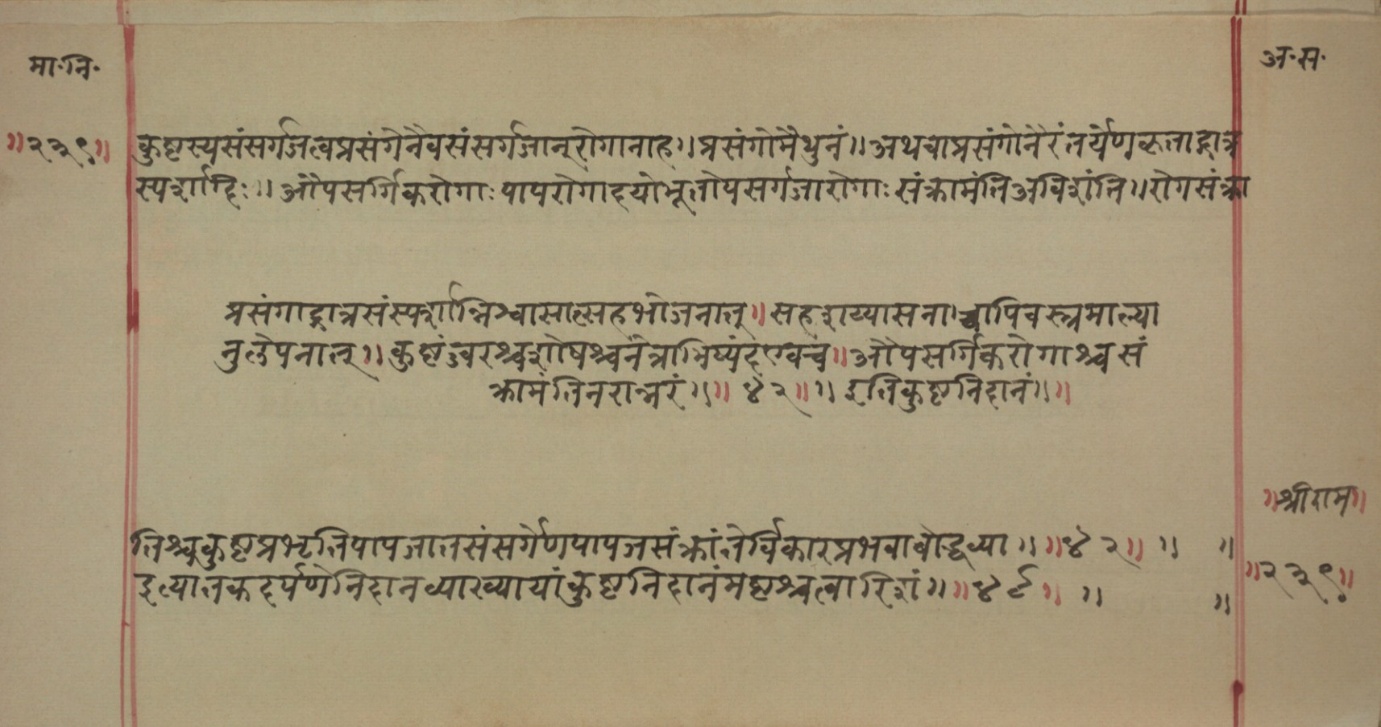 मा॰नि॰
अ॰स॰
॥२३९॥
कुष्टस्यसंसर्गजत्वप्रसंगेनैवसंसर्गजान्रोगानाह॥प्रसंगोमैथुनं॥अथवाप्रसंगोनैरंतर्येणकृताद्गात्र
स्पर्शादिः॥औपसर्गिकरोगाःपापरोगादयोभूतोपसर्गजारोगाःसंक्रामंतिअविशंति॥रोगसंक्रा
प्रसंगाद्गात्रसंस्पर्शान्निश्वासात्सहभोजनात्॥सहशय्यासनाच्चापिवस्त्रमाल्या
नुलेपनात्॥कुष्टंज्वरश्चशोषश्चनेत्राभिष्यंदएवच॥औपसर्गिकरोगाश्चसं
क्रामंतिनरान्नरं॥॥४२॥॥इतिकुष्टनिदानं॥॥
॥श्रीराम॥
तिश्चकुष्टप्रभृतिपापजातसंसर्गेणपापजसंक्रांतेर्विकारप्रभवाबोद्धव्या॥॥४२॥॥॥
इत्यातकदर्पणेनिदानव्याख्यायांकुष्टनिदानंमष्टश्चत्वारिशं॥॥४९॥॥॥
॥२३९॥